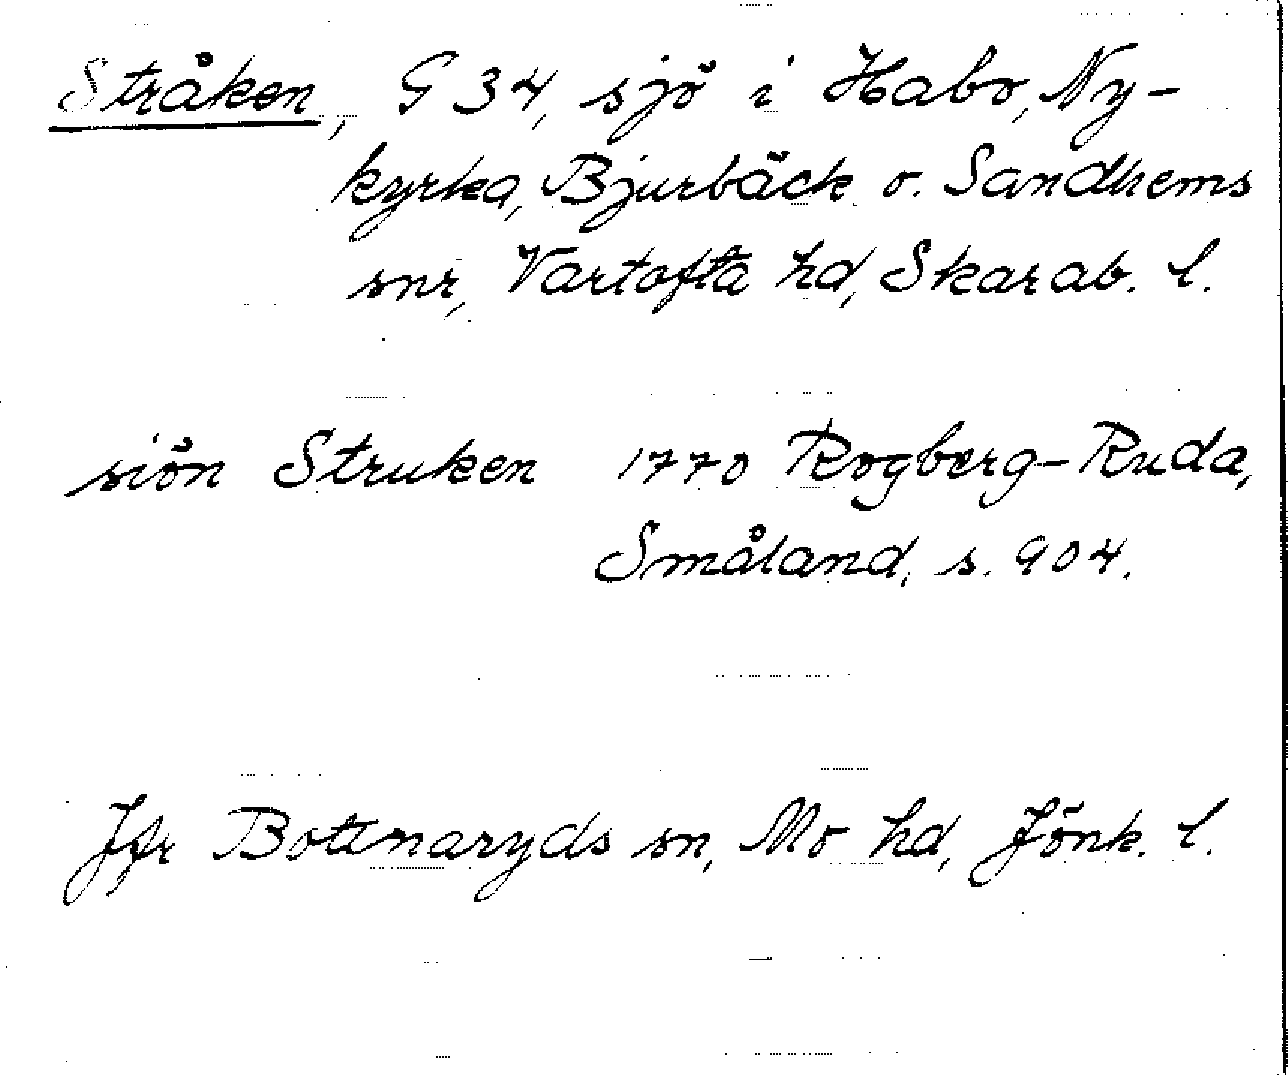 Stråken, G 34, sjö i Habo, Ny-
kyrka, Bjurbäck o. Sandhems
snr, Vartofta hd, Skarab. l.
siön Struken 1770 Rogberg-Ruda,
Småland, s. 904.
Jfr Bottnaryds sn, Mo hd, Jönk. l.